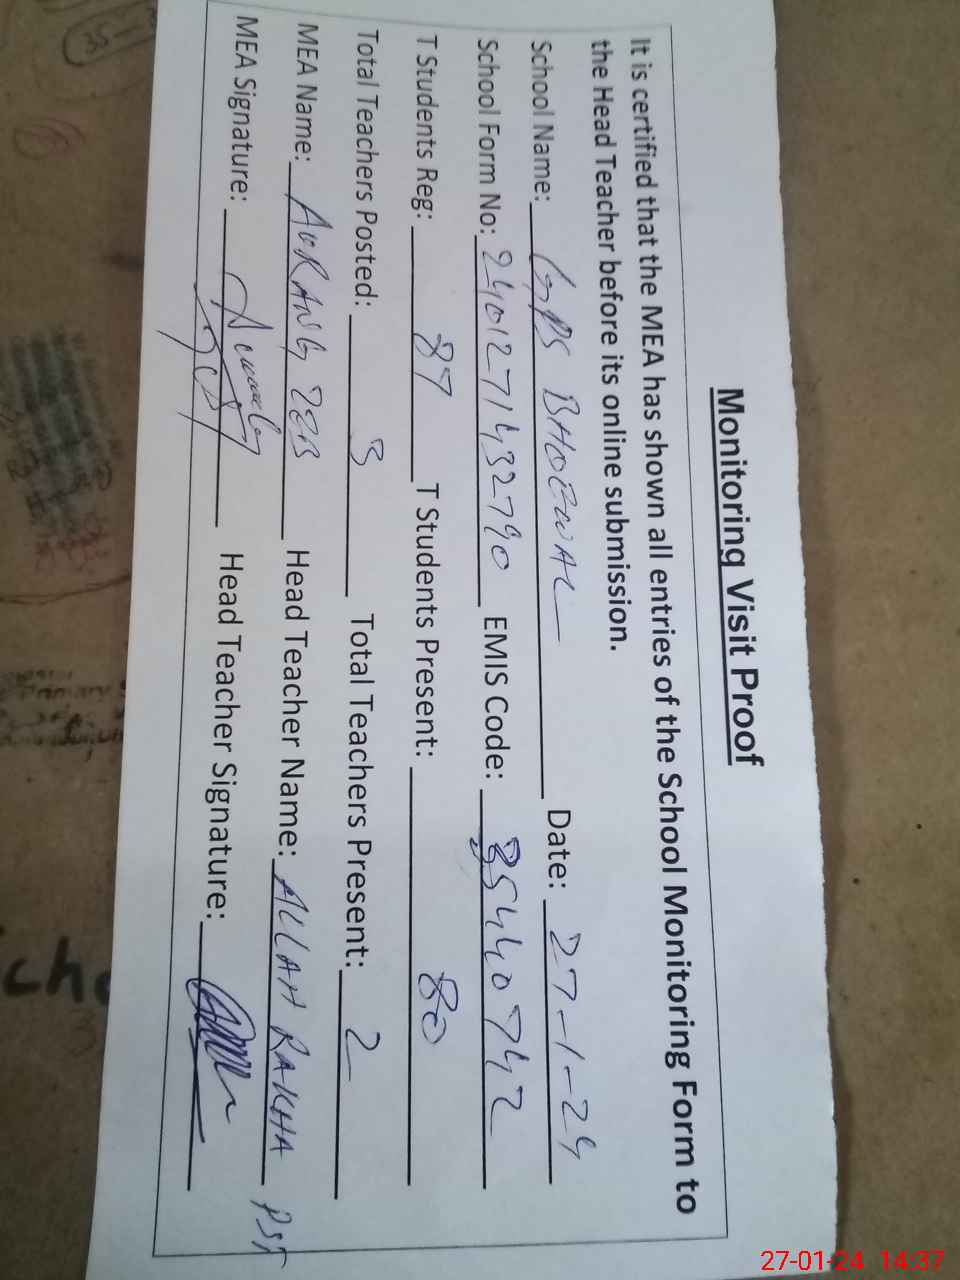 Monitoring Visit Proof
It is certified that the MEA has shown all entries of the School Monitoring Form to
the Head Teacher before its online submission.
School Name: GPS BHOEWAL Date: 27-1-24
School Form No: 2401271432790 EMIS Code: 35440742
T Students Reg: 87 T Students Present: 80
Total Teachers Posted: 3 Total Teachers Present: 2
MEA Name: AURANG ZEB Head Teacher Name: ALLAH RAKHA PST
MEA Signature: Head Teacher Signature:
27-01-24 14:37